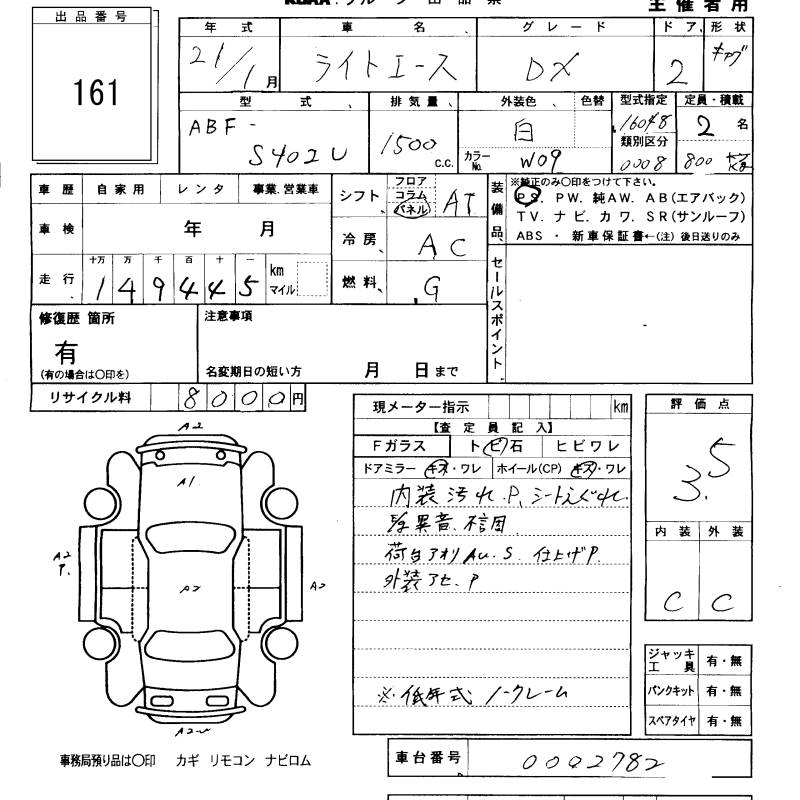 主催者用
出品番号
161
年式 車名 グレード ドア 形状
21/1月 ライトエース DX 2 キャブ
型式 排気量 外装色 色替 型式指定 定員・積載
ABF-S402U 1500 c.c. 白 16048 2名
カラーNo. W09 類別区分 0008 800
車歴 自家用 レンタ 事業.営業車
車検 年 月
走行 十万 万 千 百 十 一
149445 km マイル
シフト フロア コラム パネル AT
冷房 AC
燃料 G
装備品
※純正のみ○印をつけて下さい。
PS. PW. 純AW. AB(エアバック)
TV. ナビ. カワ. SR(サンルーフ)
ABS ・ 新車保証書←(注) 後日送りのみ
セールスポイント
修復歴 箇所
有
(有の場合は○印を)
注意事項
名変期日の短い方 月 日まで
リサイクル料 8000円
現メーター指示 km
【査定員記入】
Fガラス トビ石 ヒビワレ
ドアミラー キズ・ワレ ホイール(CP) キズ・ワレ
内装汚れ.P.シートえぐれ
異音.
荷台アオリAu.S. 仕上げP.
外装アセ.P
※低年式 ノークレーム
評価点
3.5
内装 外装
C C
ジャッキ工具 有・無
パンクキット 有・無
スペアタイヤ 有・無
A2
A1
A2
P.
A2
A2
事務局預り品は○印 カギ リモコン ナビロム
車台番号 0002782